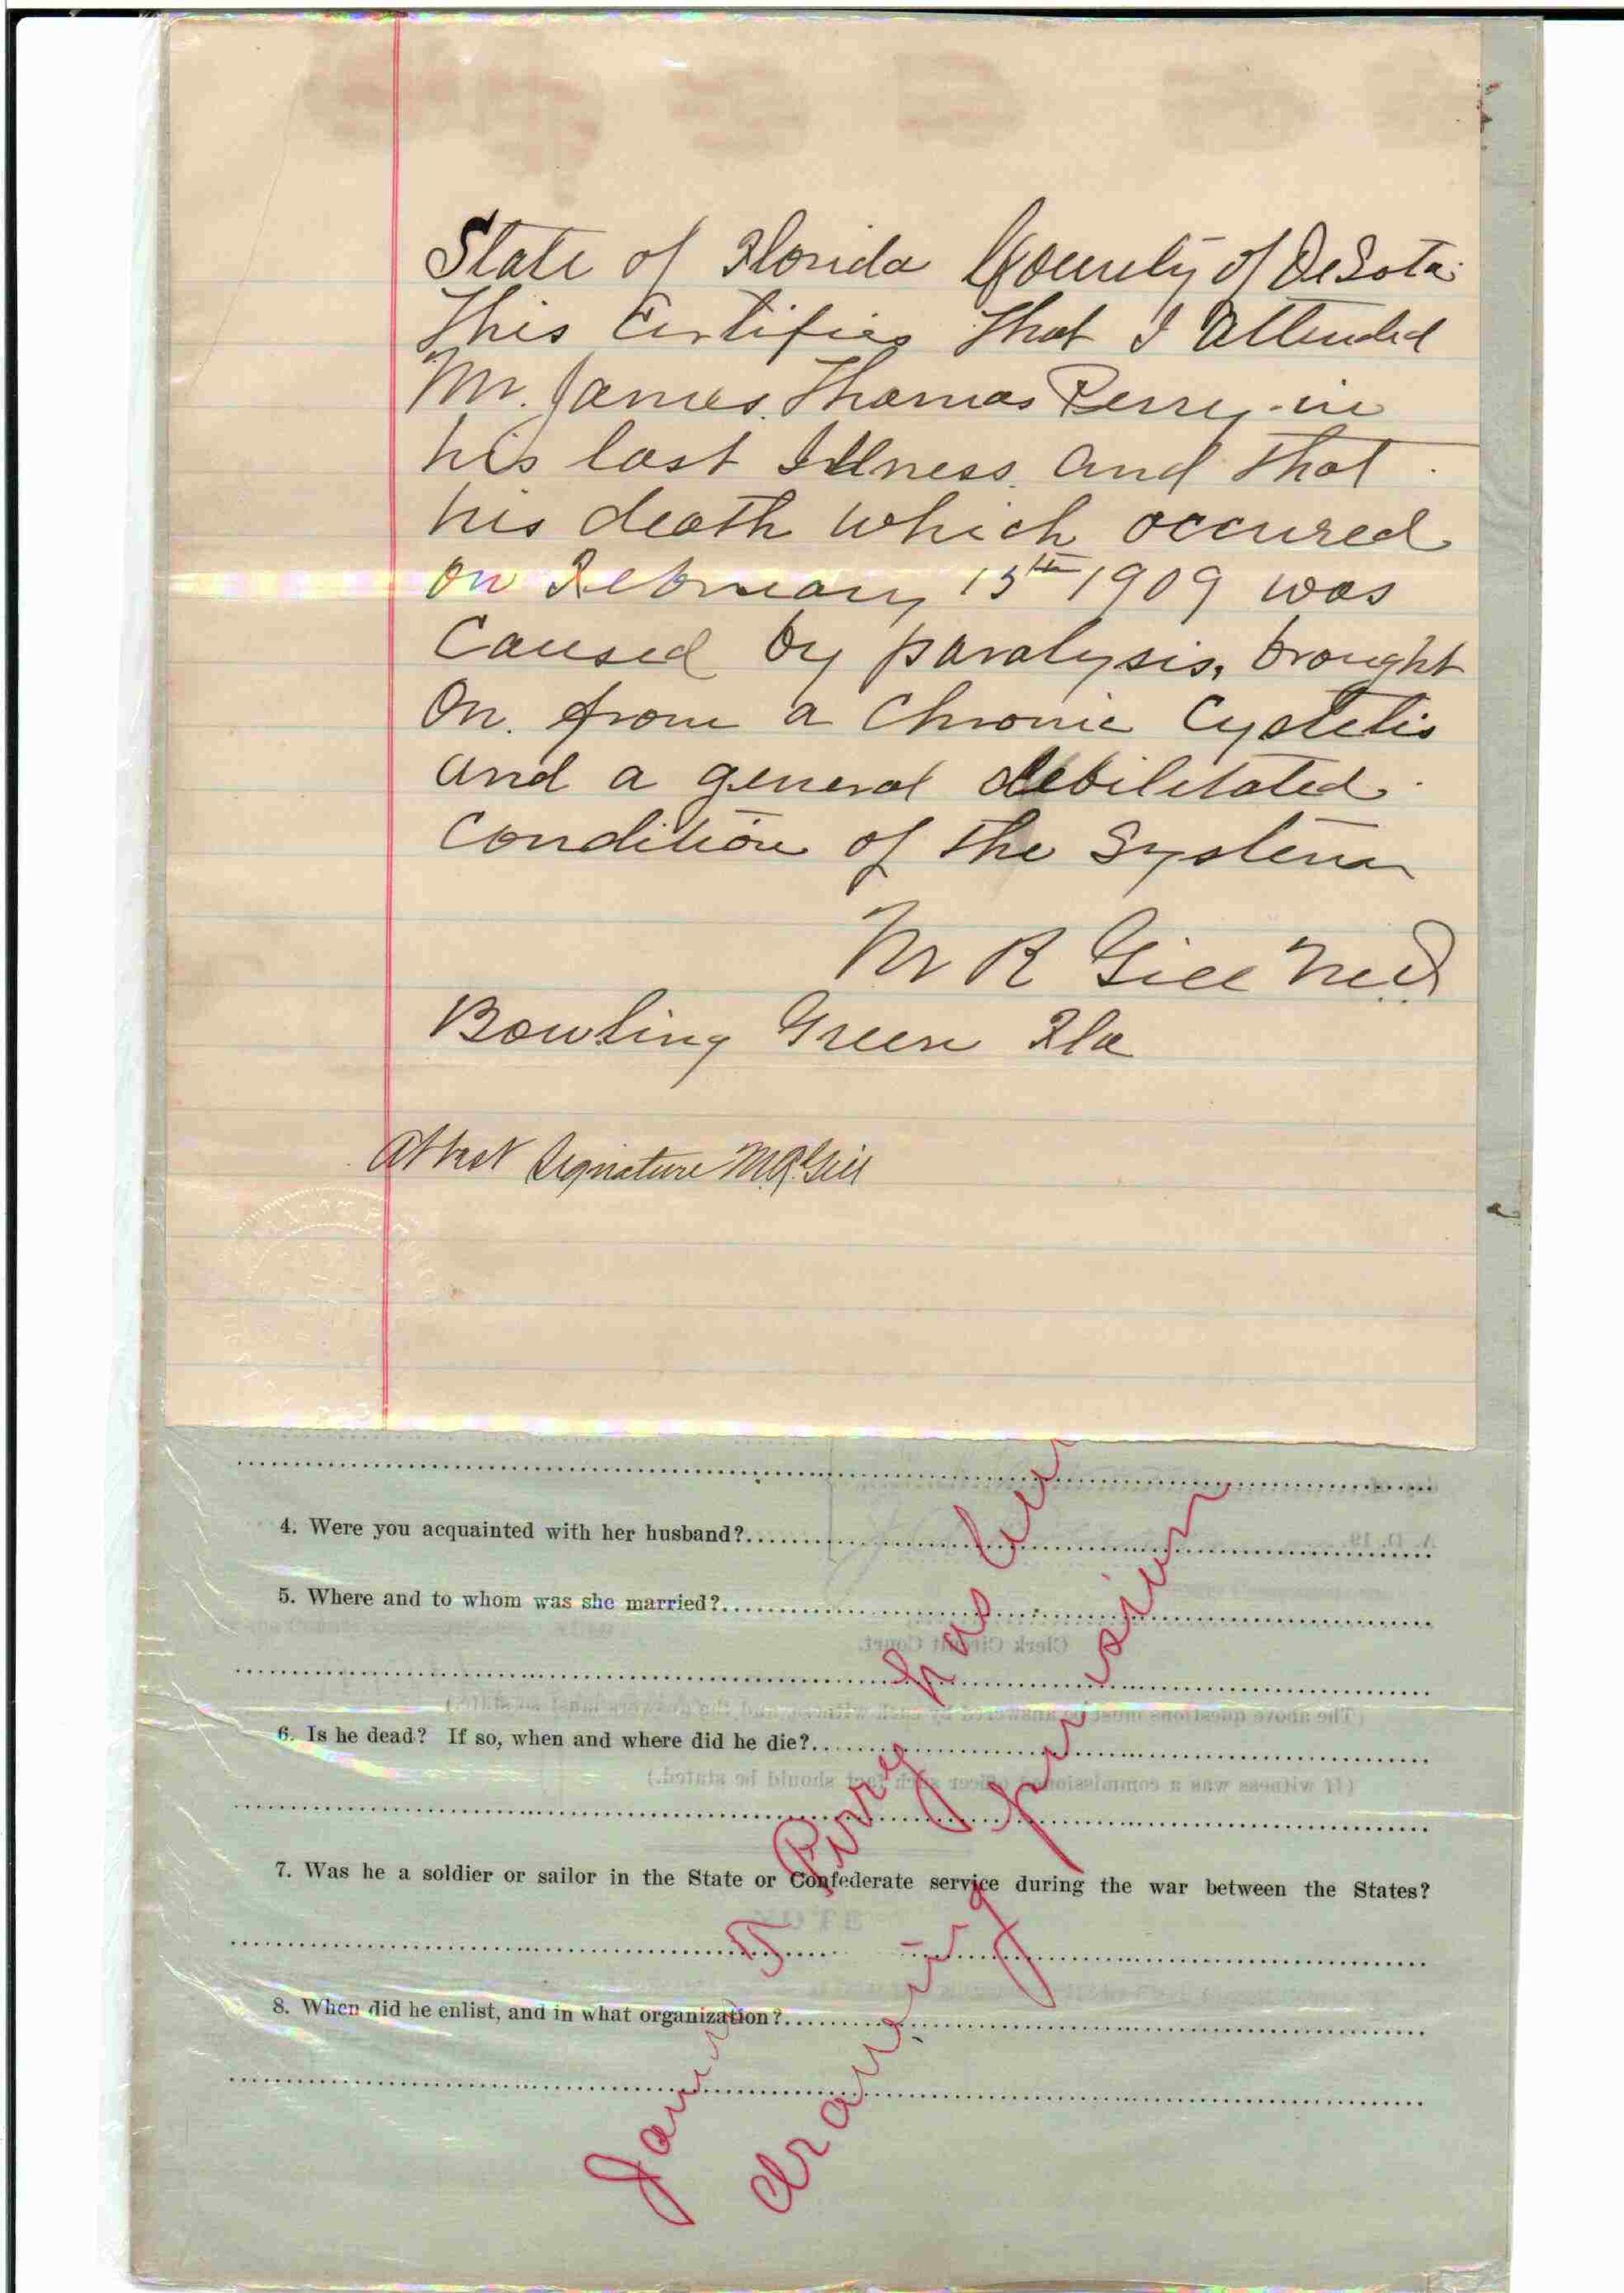 State of Florida County of DeSota
This Certifies that I attended
Mr. James Thomas Perry in
his last Illness and that
his death which occured
on February 15th 1909 was
Caused by paralysis, brought
On. from a Chronic Cystetis
and a general debilitated
condition of the System
M R Gill M.D.
Bowling Green Fla
Attest Signature M.R. Gill
4. Were you acquainted with her husband?
A. D. 19
5. Where and to whom was she married?
Clerk Circuit Court.
(The above questions must be answered by each witness, and the answers must be stated.)
6. Is he dead? If so, when and where did he die?
(If witness was a commissioned officer such fact should be stated.)
7. Was he a soldier or sailor in the State or Confederate service during the war between the States?
8. When did he enlist, and in what organization?
James T Perry has been
drawing pension